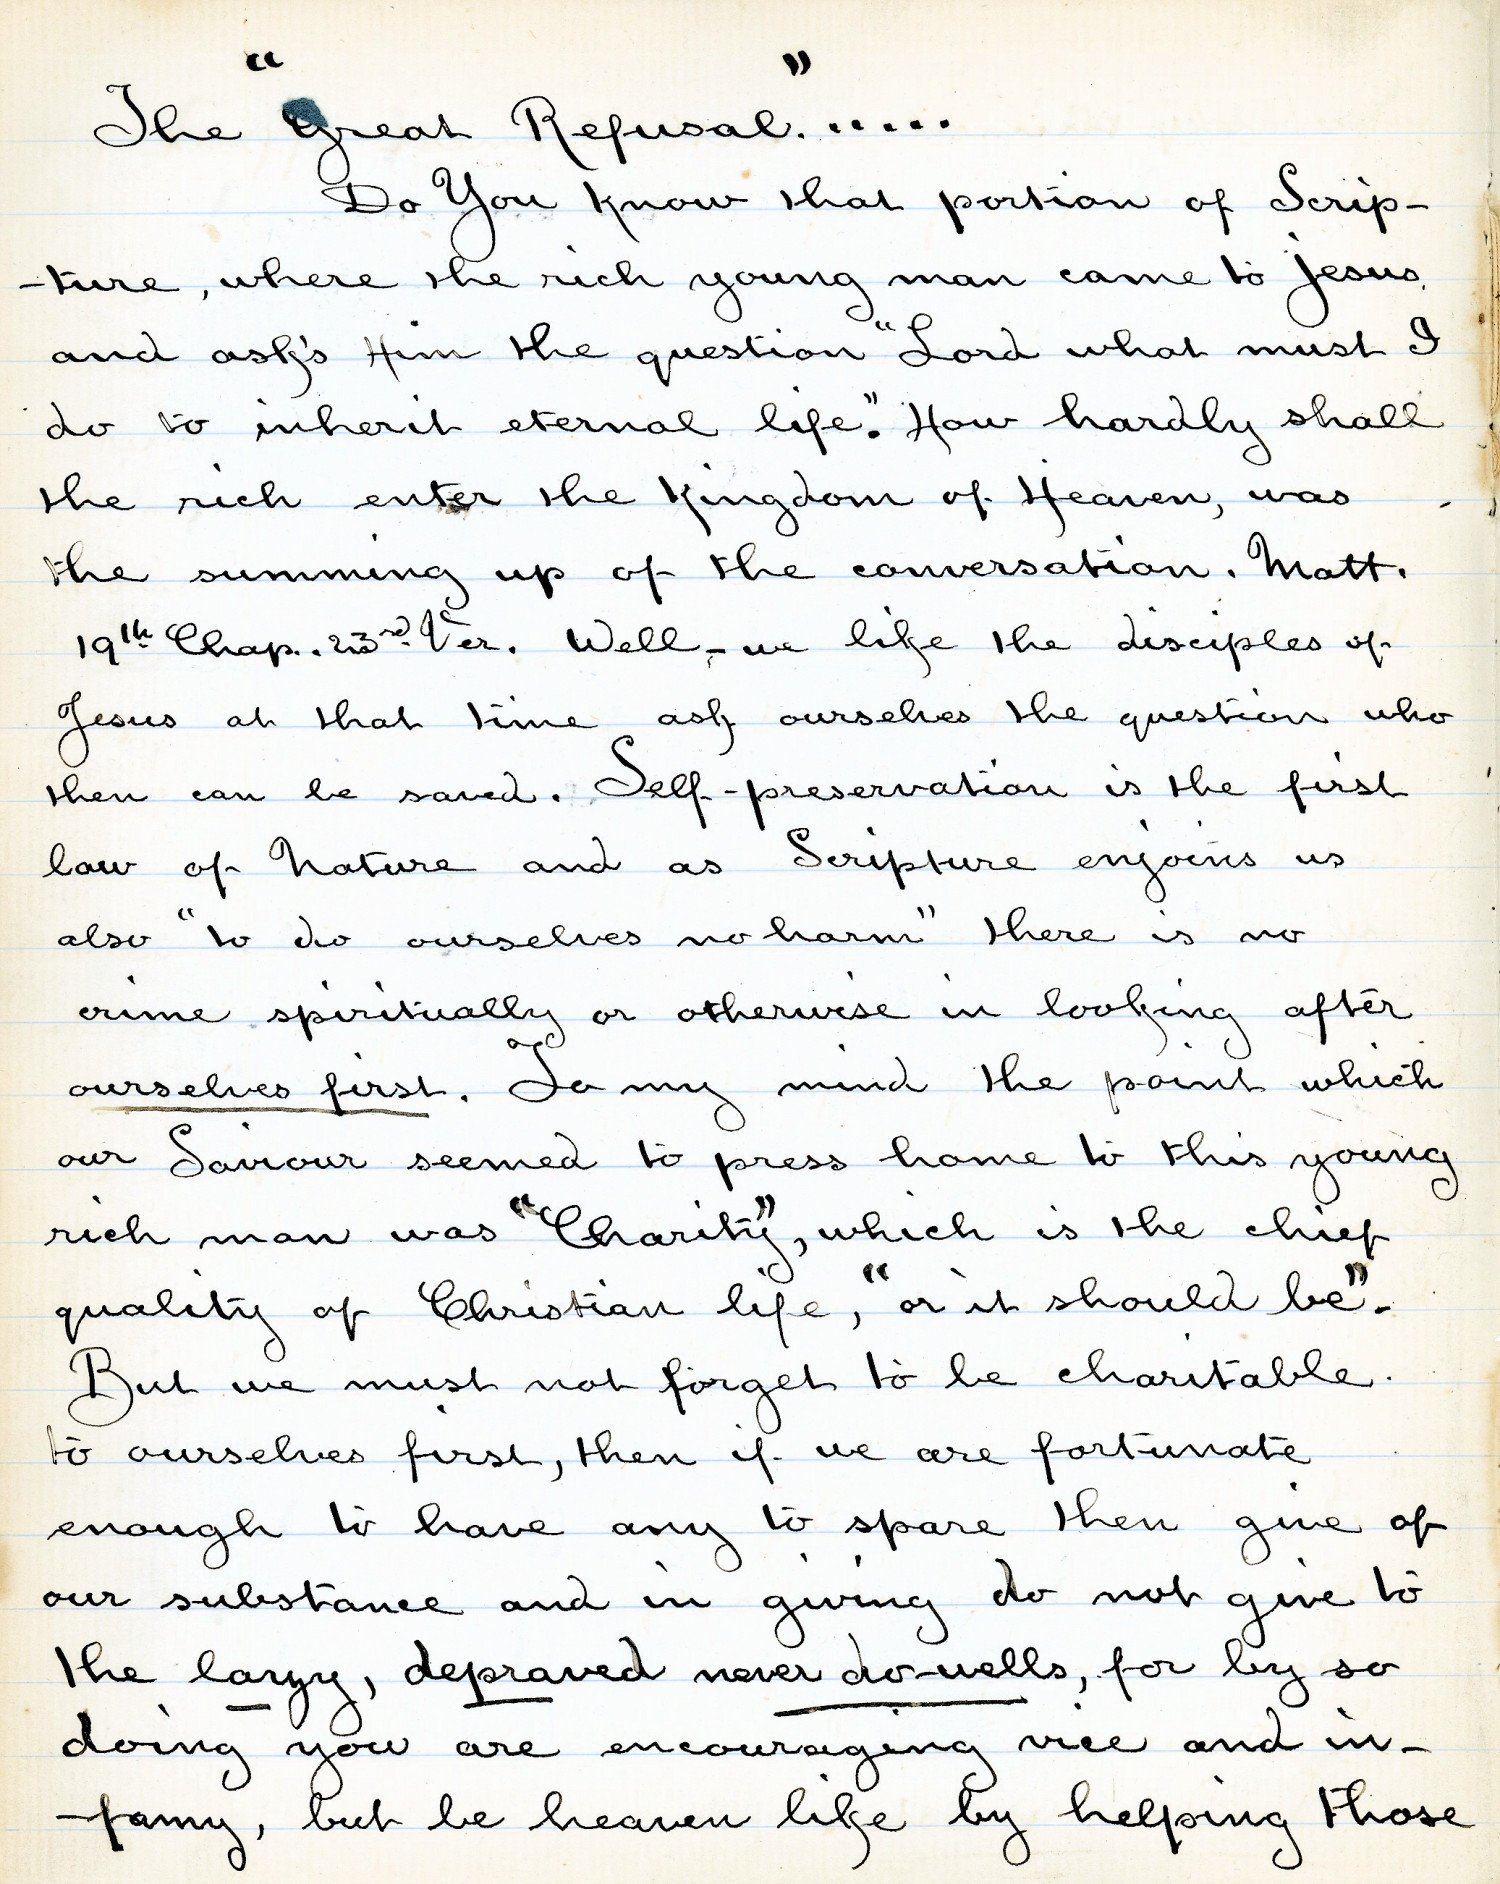 The "Great Refusal."....
Do You know that portion of Scrip-
-ture, where the rich young man came to Jesus,
and ask's Him the question "Lord what must I
do to inherit eternal life". How hardly shall
the rich enter the Kingdom of Heaven, was
the summing up of the conversation. Matt.
19th Chap. 23rd Ver. Well, - we like the disciples of
Jesus at that time ask ourselves the question who
then can be saved. Self-preservation is the first
law of Nature and as Scripture enjoins us
also "to do ourselves no harm" there is no
crime spiritually or otherwise in looking after
ourselves first. To my mind the point which
our Saviour seemed to press home to this young
rich man was "Charity", which is the chief
quality of Christian life, "or it should be".
But we must not forget to be charitable
to ourselves first, then if we are fortunate
enough to have any to spare then give of
our substance and in giving do not give to
the lazy, depraved never do-wells, for by so
doing you are encouraging vice and in-
-famy, but be heaven like by helping those